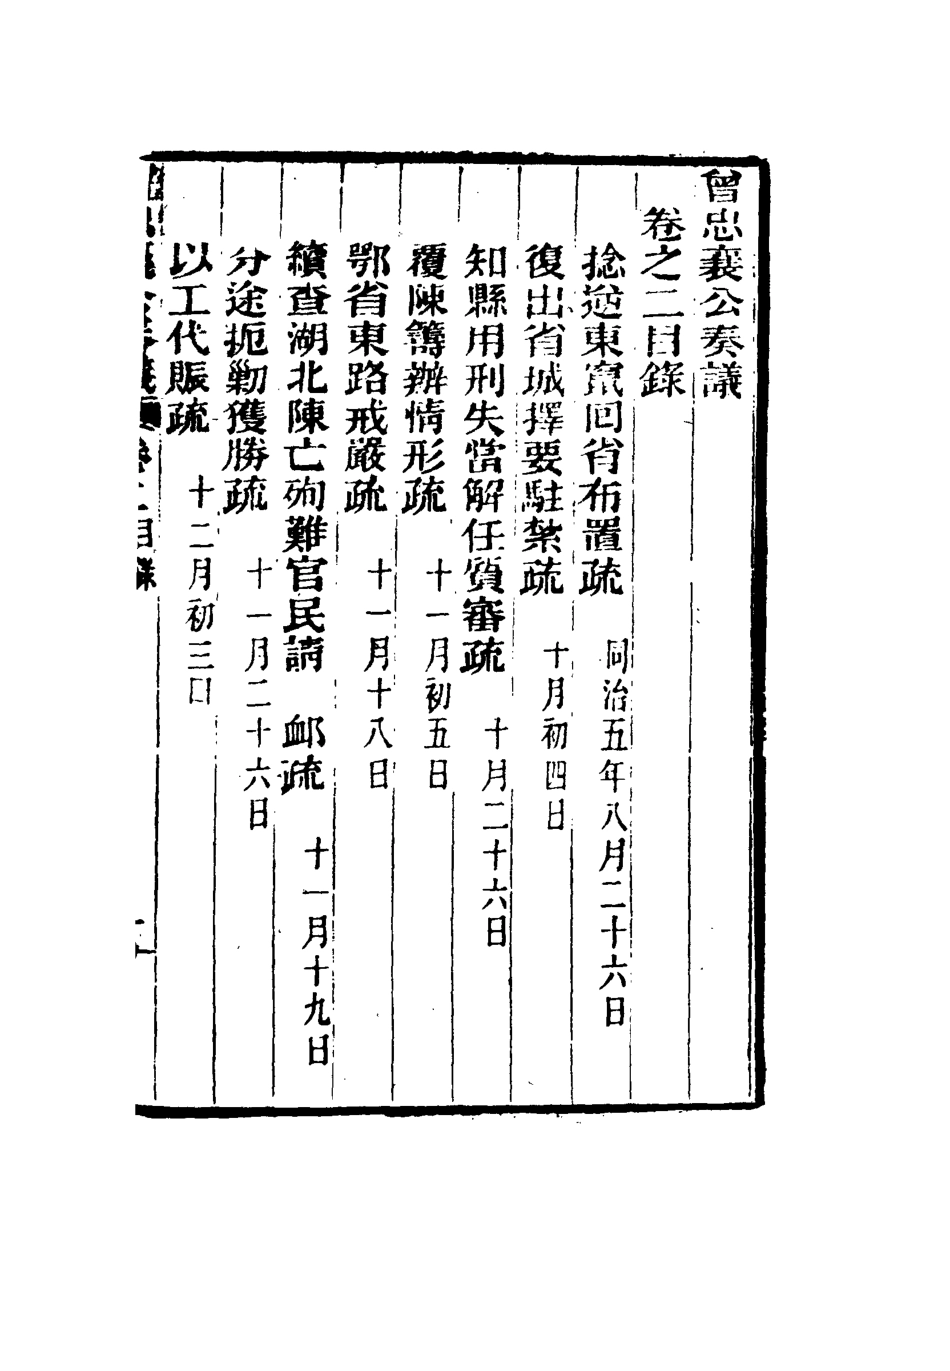 曾忠襄公奏議
卷之二目錄
捻逆東竄回省布置疏　同治五年八月二十六日
復出省城擇要駐紮疏　十月初四日
知縣用刑失當解任質審疏　十月二十六日
覆陳籌辦情形疏　十一月初五日
鄂省東路戒嚴疏　十一月十八日
續查湖北陳亡殉難官民請　卹疏　十一月十九日
分途扼勦獲勝疏　十一月二十六日
以工代賑疏　十二月初三口